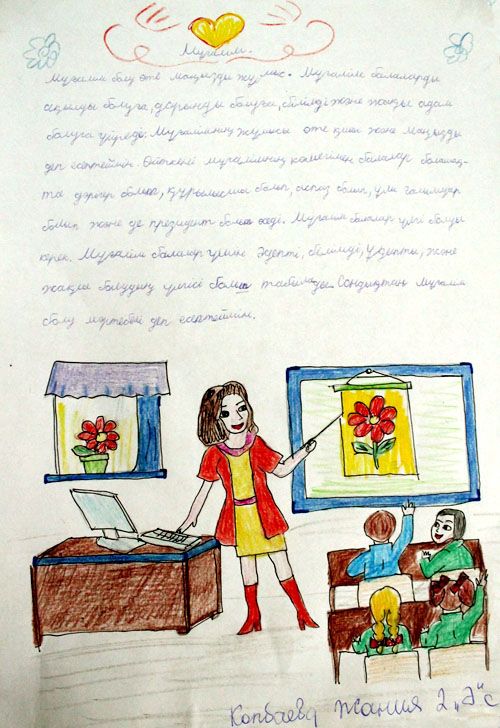 Мұғалім.
Мұғалім болу өте маңызды жұмыс. Мұғалім балаларды
ақылды болуға, дарынды болуға, білімді және жақсы адам
болуға үйретеді. Мұғалімнің жұмысы өте қиын және маңызды
деп есептеймін. Өйткені мұғалімнің көмегімен балалар болашақ-
та дәрігер болып, құрылысшы болып, аспаз болып, ұлы ғалымдар
болып және де президент болып өседі. Мұғалім балалар үлгі болуы
керек. Мұғалім балалар үшін әдепті, білімді, ұқыпты, және
жақсы болудың үлгісі болып табылады. Сондықтан мұғалім
болу мәртебелі деп есептеймін.
Копбаева Жания 2 "Ә" с